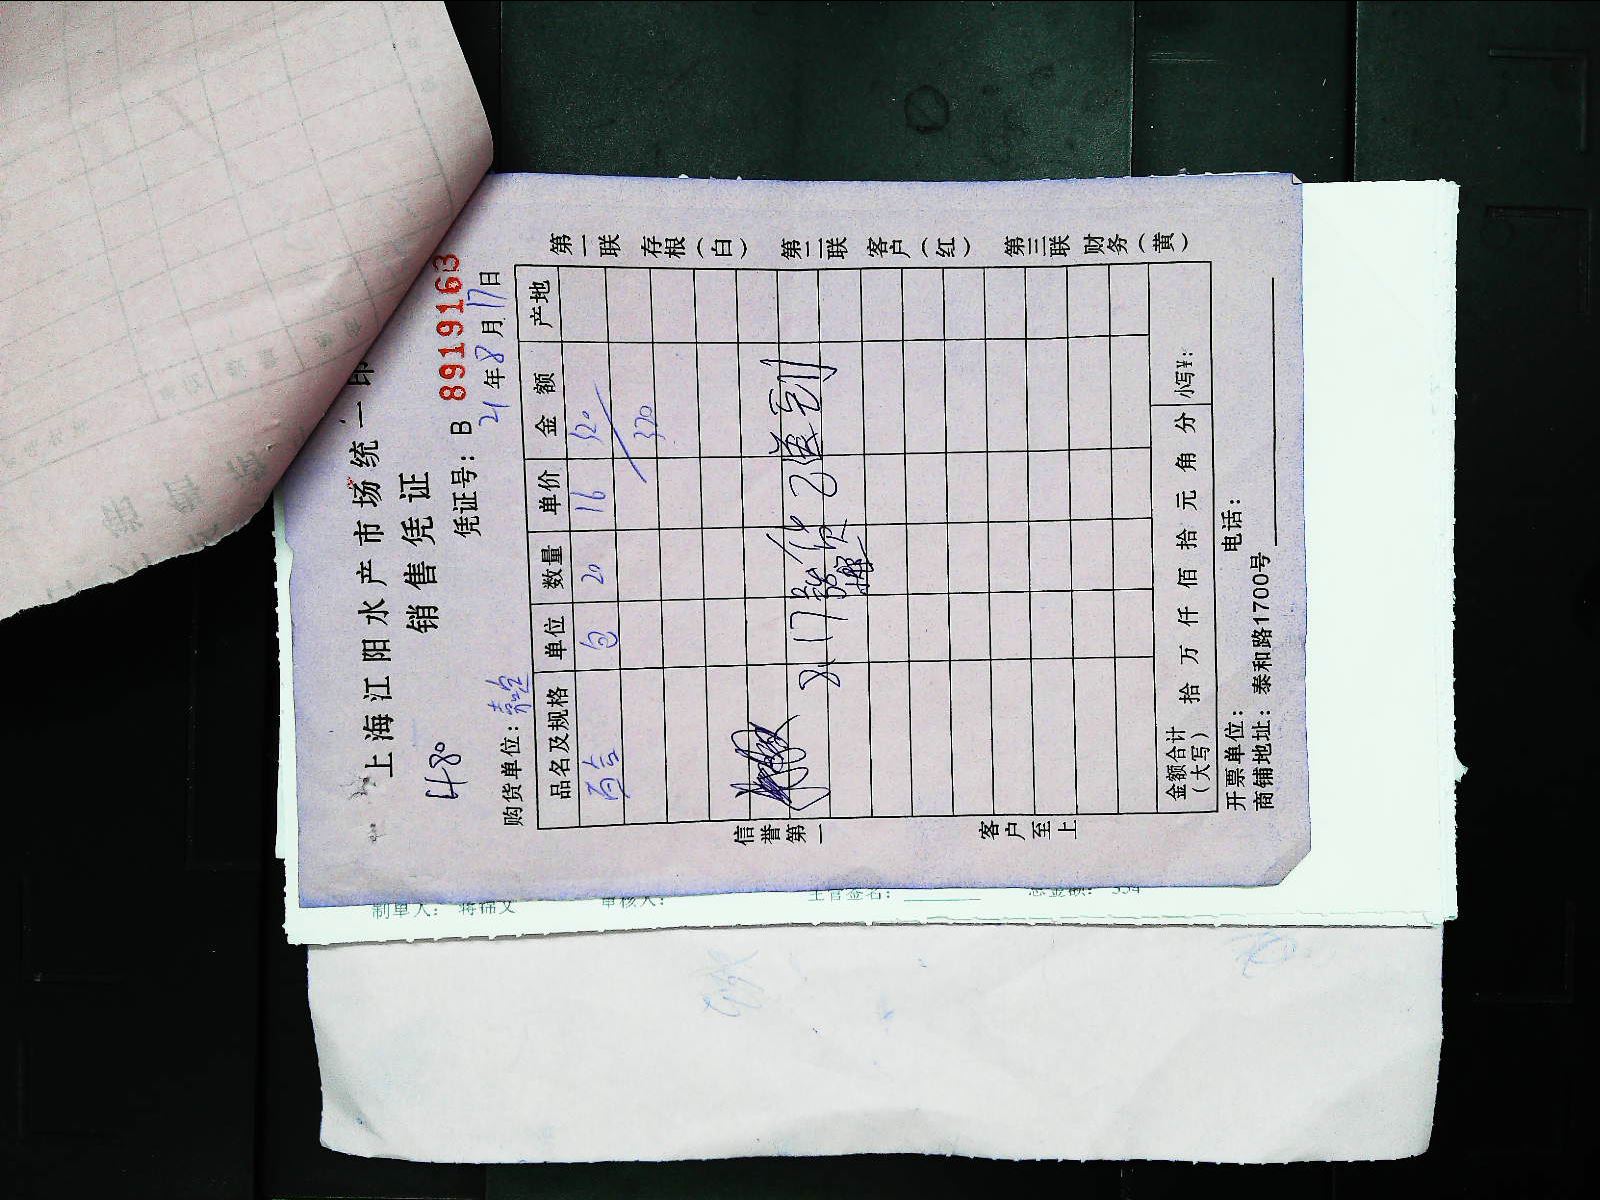 上海江阳水产市场统一印
销售凭证
凭证号：B 8919163
480
21年8月17日
购货单位：
品名及规格 单位 数量 单价 金额 产地
百合 包 20 16 320
320
8.17 货已送到
金额合计（大写） 拾 万 仟 佰 拾 元 角 分 小写¥：
开票单位： 电话：
商铺地址：泰和路1700号
第一联 存根（白） 第二联 客户（红） 第三联 财务（黄）
信誉第一 客户至上
制单人： 蒋锦文 审核人： 主管签名： 总金额： 334